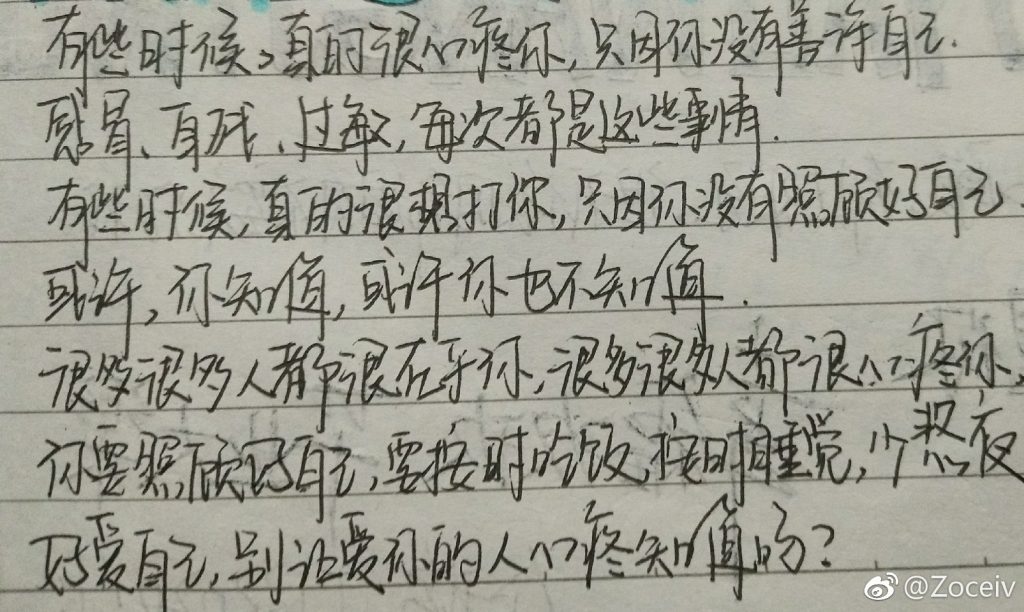 有些时候,真的很心疼你,只因你没有善许自己.
感冒、自残、过敏,每次都是这些事情.
有些时候,真的很想打你,只因你没有照顾好自己.
或许,你知值,或许你也不知值.
很多很多人都很在乎你,很多很多人都很心疼你、
你要照顾好自己,要按时吃饭,按时睡觉,少熬夜
好爱自己,别让爱你的人心疼知值吗?
@Zoceiv